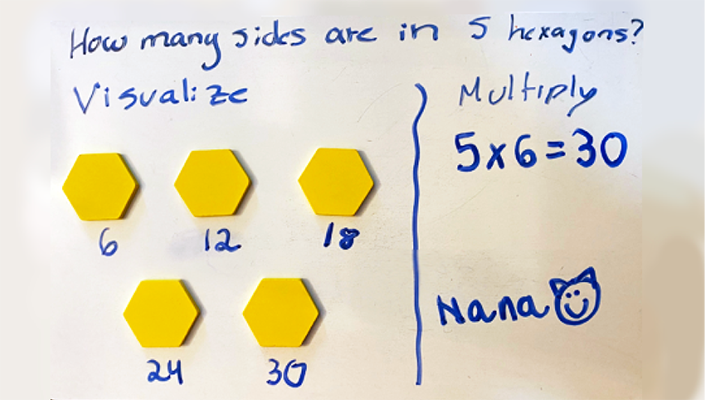 How many sides are in 5 hexagons?
Visualize
6 12 18
24 30
Multiply
5x6=30
Nana